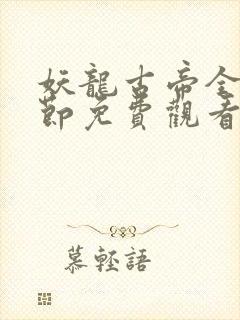 妖龍古帝全
節免費觀看
慕輕語